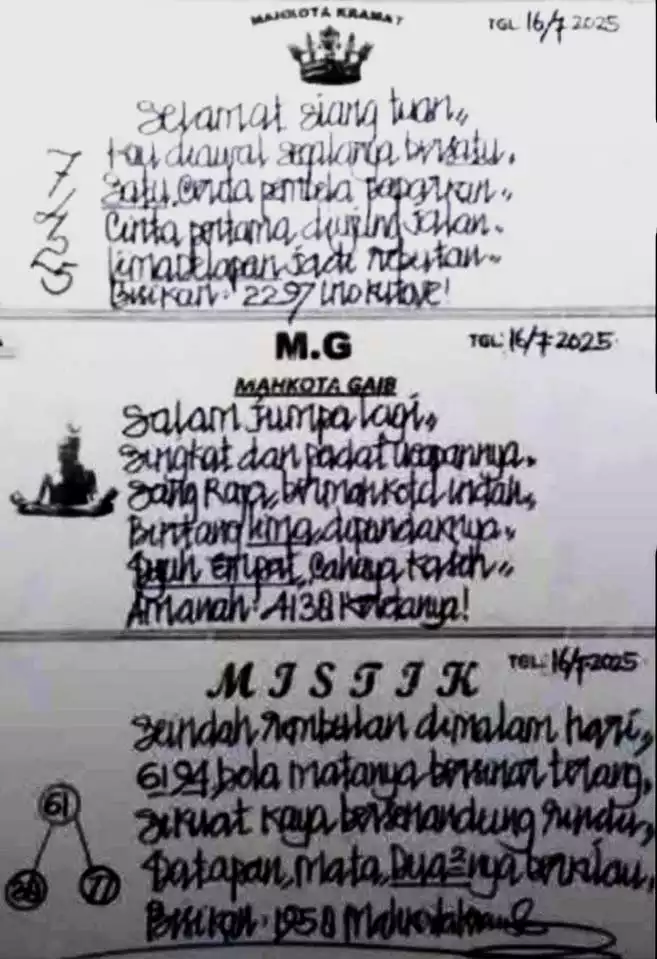 MAHKOTA KRAMAT
TGL 16/7 2025
Selamat siang tuan,,
7, Kau diawal segalanya bersatu.
Satu, Cerita pembela paparkan,,
3 Cinta pertama diujung jalan.
5 lima delapan jadi rebutan.
Bisikan: 2297
M.G
TGL: 16/7-2025
MAHKOTA GAIB
Salam jumpa lagi,
Singkat dan padat ucapannya.
Sang Raja, bermahkota indah,
Bintang lima, dipundaknya.
Tujuh Empat, Cahaya Kasih,,
Amanah: 4138 Kordanya!
MISTIK
TGL: 16/7-2025
Seindah Rembulan dimalam hari,,
6194, bola matanya bersinar terang,
61 Sikuat kaya bersenandung rindu,
77 Tatapan, Mata, Dua2nya berkilau,
Bisikan: 1958